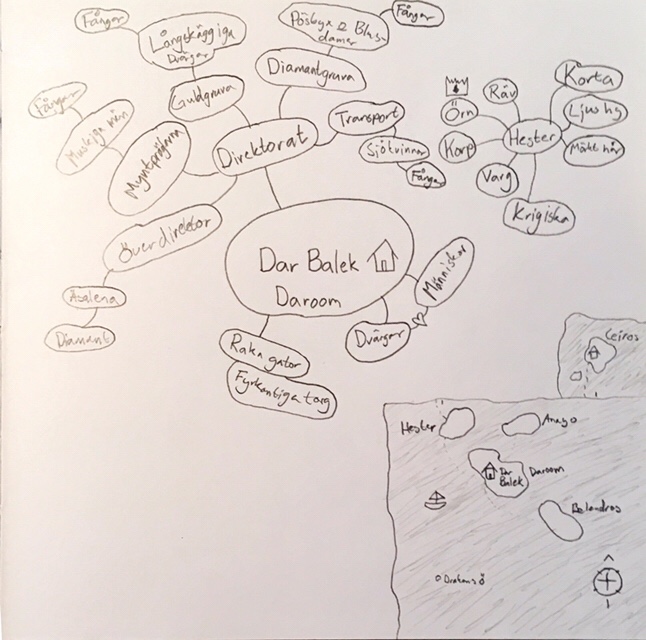 Fångar
Långskäggiga
Dvärgar
Guldgruva
Påsbyx &
damer
Fångar
Diamantgruva
Transport
Sjökvinnor
Fångar
Direktorat
Fångar
Muskiga män
Myntprägling
Överdirektor
Asalena
Diamant
Dar Balek
Daroom
Människor
Dvärgar
Raka gator
Fyrkantiga torg
Hester
Korta
Ljus hy
Mörkt hår
Krigiska
Varg
Korp
Örn
Räv
Leiros
Hester
Anayo
Dar
Balek
Daroom
Belandros
Drakens ö